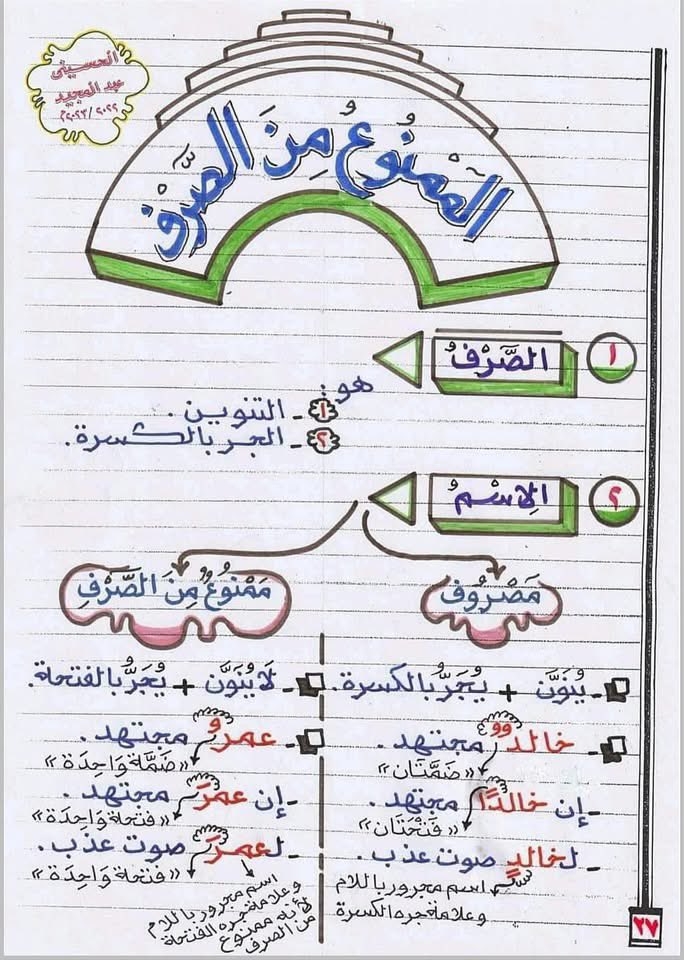 الحسيني
عبد المجيد
٢٠٢٢/٢٠٢٣م
المَمْنُوعُ مِنَ الصَّرْفِ
١
الصَّرْفُ
هو:
١- التنوين.
٢- الجر بالكسرة.
٢
الِاسْمُ
مَصْرُوف
مَمْنُوعٌ مِنَ الصَّرْفِ
- يُنَوَّن + يُجَرُّ بالكسرة.
- لَا يُنَوَّن + يُجَرُّ بالفتحة.
- خالدٌ مجتهد.
وو
«ضَمَّتَان»
- عمرُ مجتهد.
و
«ضَمَّة وَاحِدَة»
- إن خالدًا مجتهد.
«فَتْحَتَان»
- إن عمرَ مجتهد.
«فتحة وَاحِدَة»
- لخالدٍ صوت عذب.
اسم مجرور باللام
وعلامة جره الكسرة
- لعمرَ صوت عذب.
«فتحة وَاحِدَة»
اسم مجرور باللام
وعلامة جره الفتحة
لأنه ممنوع
من الصرف
٢٧